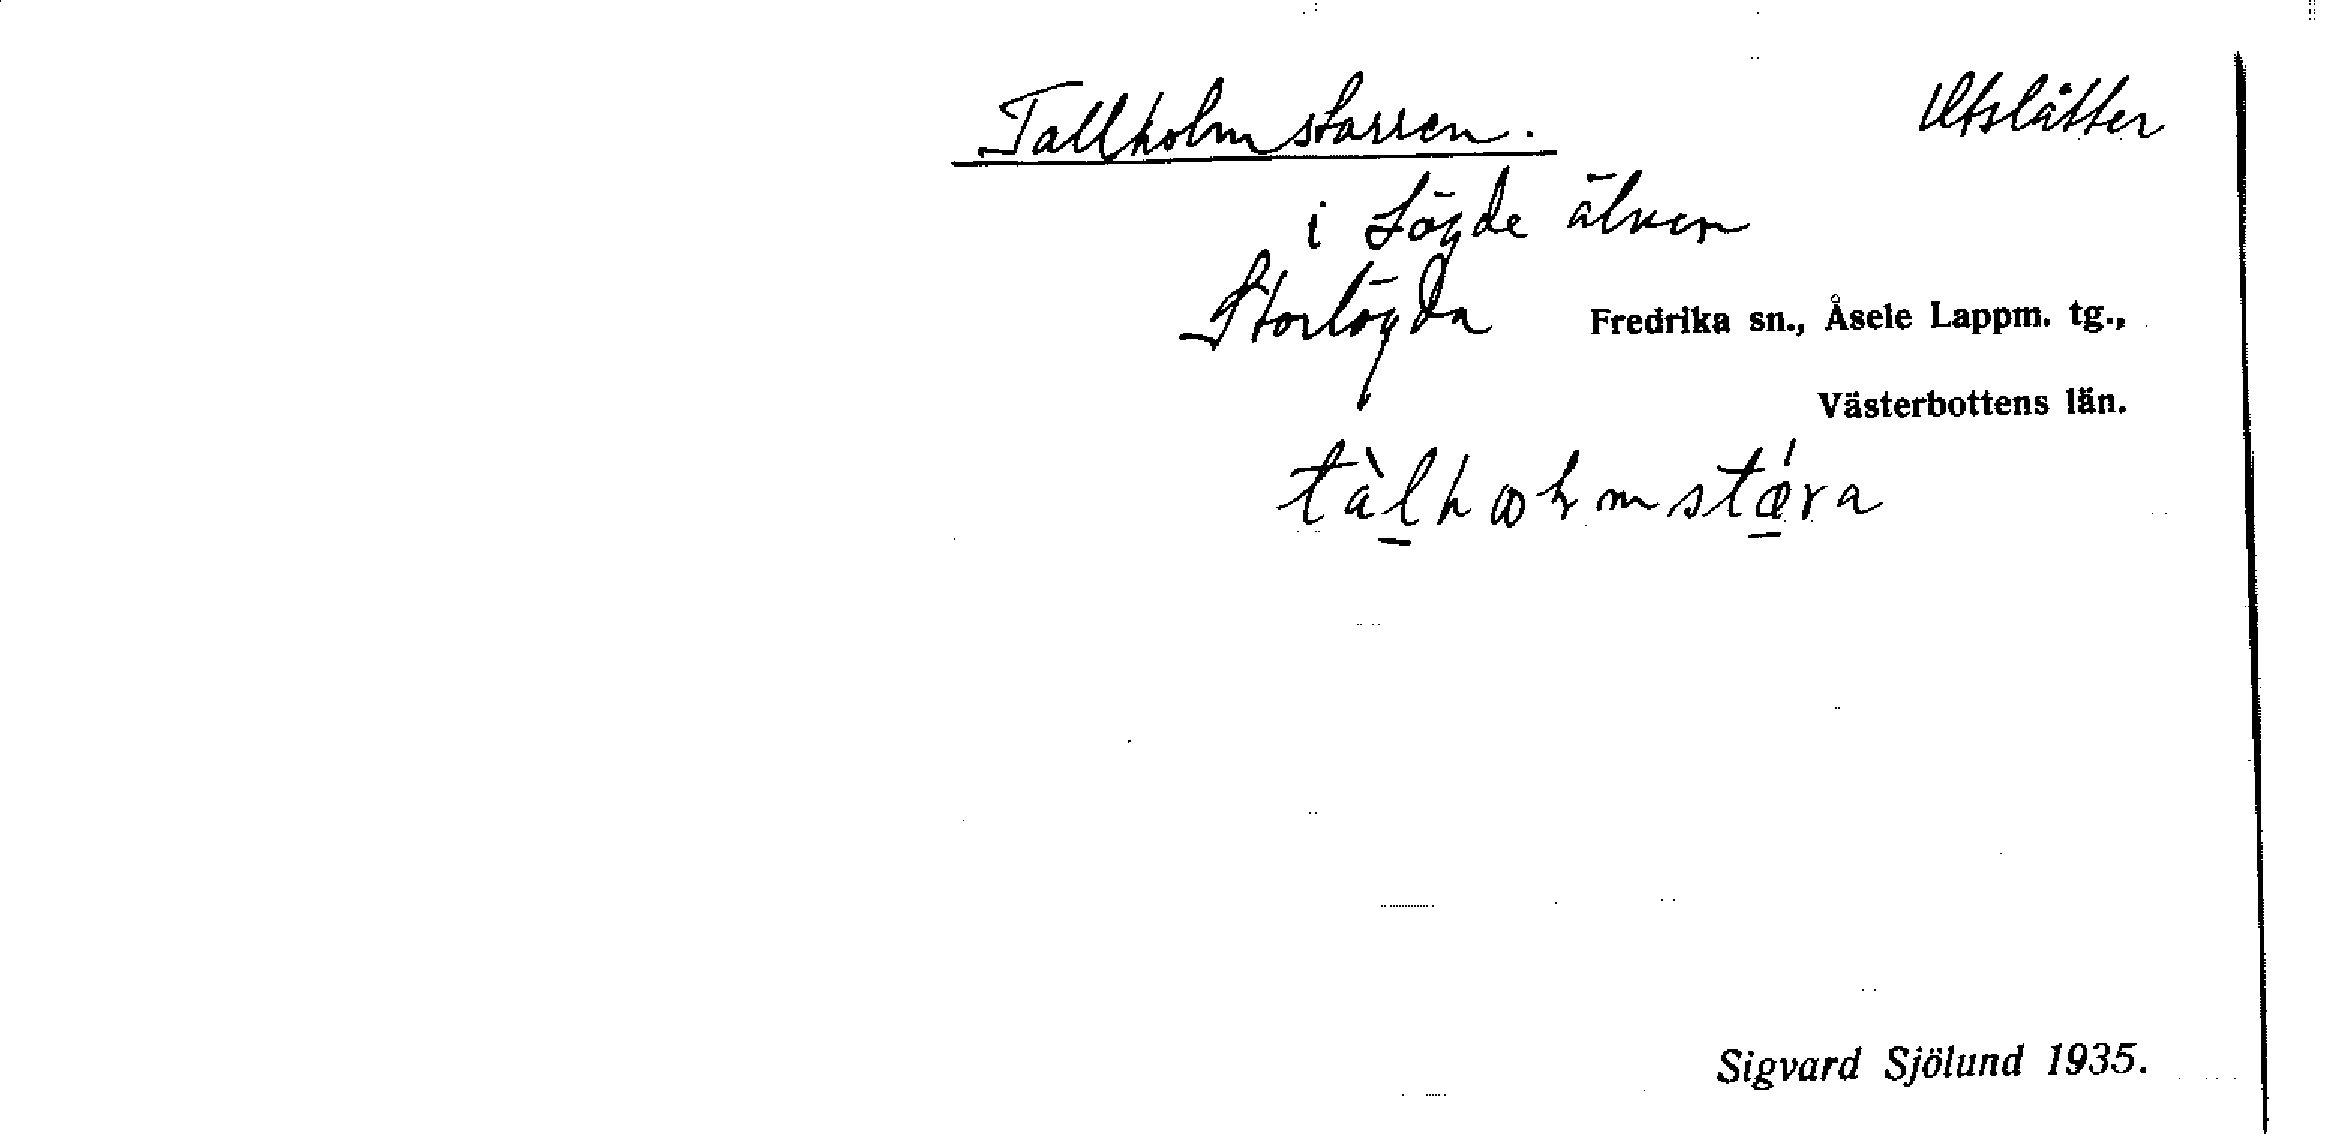 Tallholmstarren. Utslåtter
i Lögde älven
Storlögda Fredrika sn., Åsele Lappm. tg.,
Västerbottens län.
Sigvard Sjölund 1935.